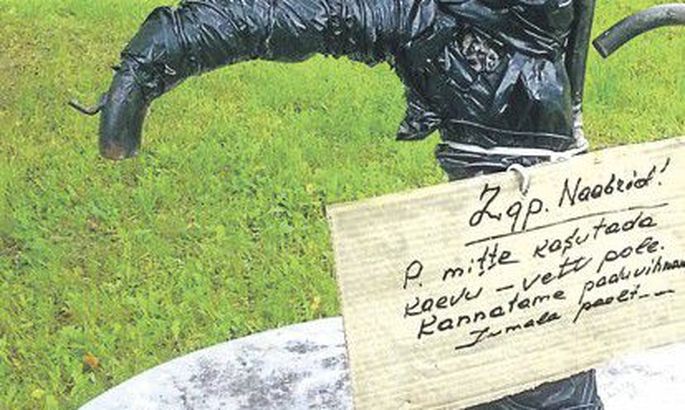 Lgp. Naabrid!
P. mitte kasutada
kaevu – vett pole.
Kannatame
Jumala poolt——